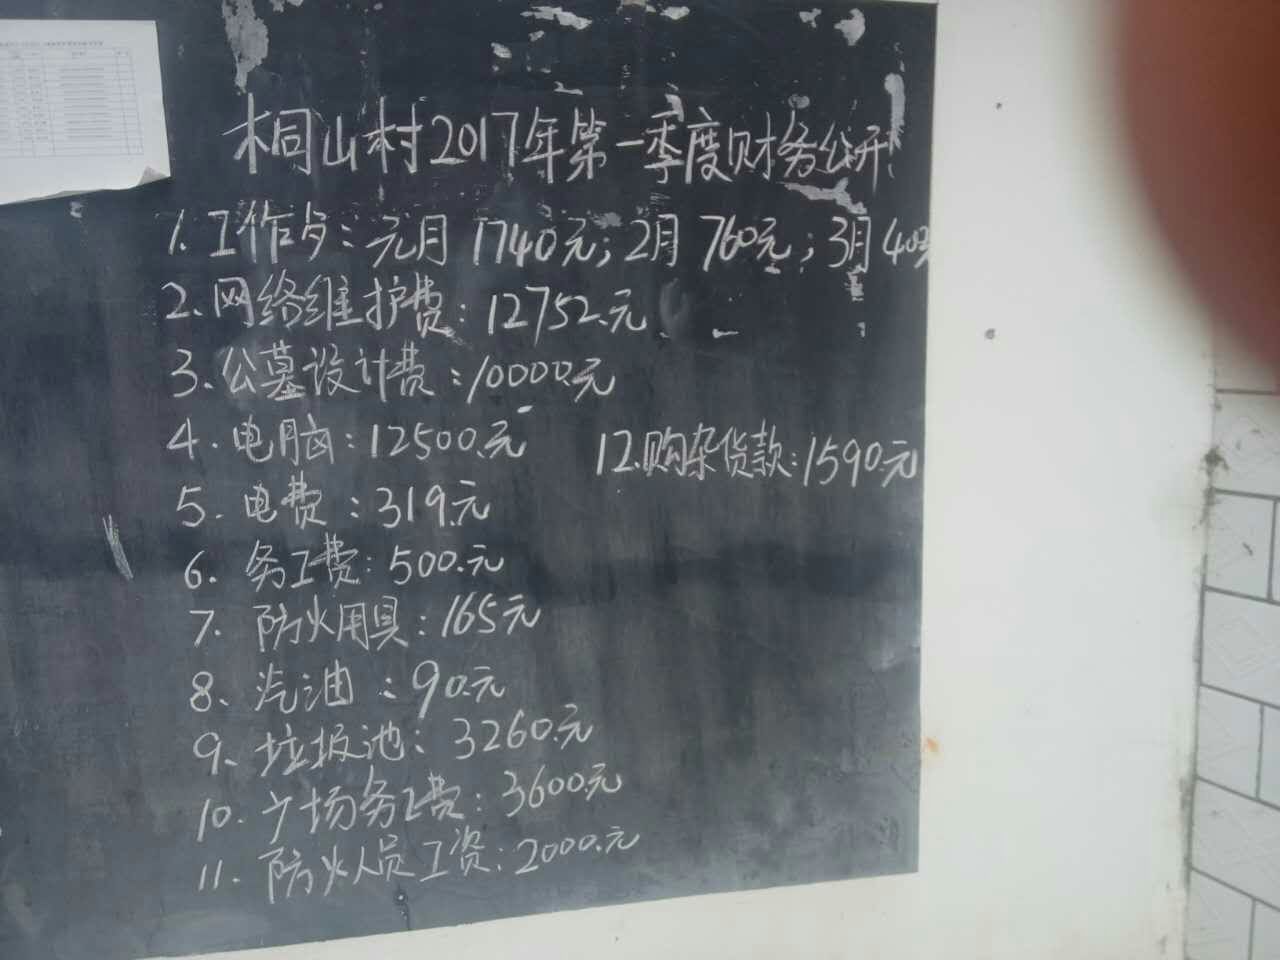 桐山村2017年第一季度财务公开
1.工作歺:元月1740元;2月760元;3月40
2.网络维护费:12752.元
3.公墓设计费:10000.元
4.电脑:12500.元
5.电费:319.元
6.务工费:500.元
7.防火用具:165元
8、汽油:90.元
9、垃圾池:3260.元
10.广场务工费:3600.元
11.防火人员工资:2000.元
12.购杂货款:1590.元